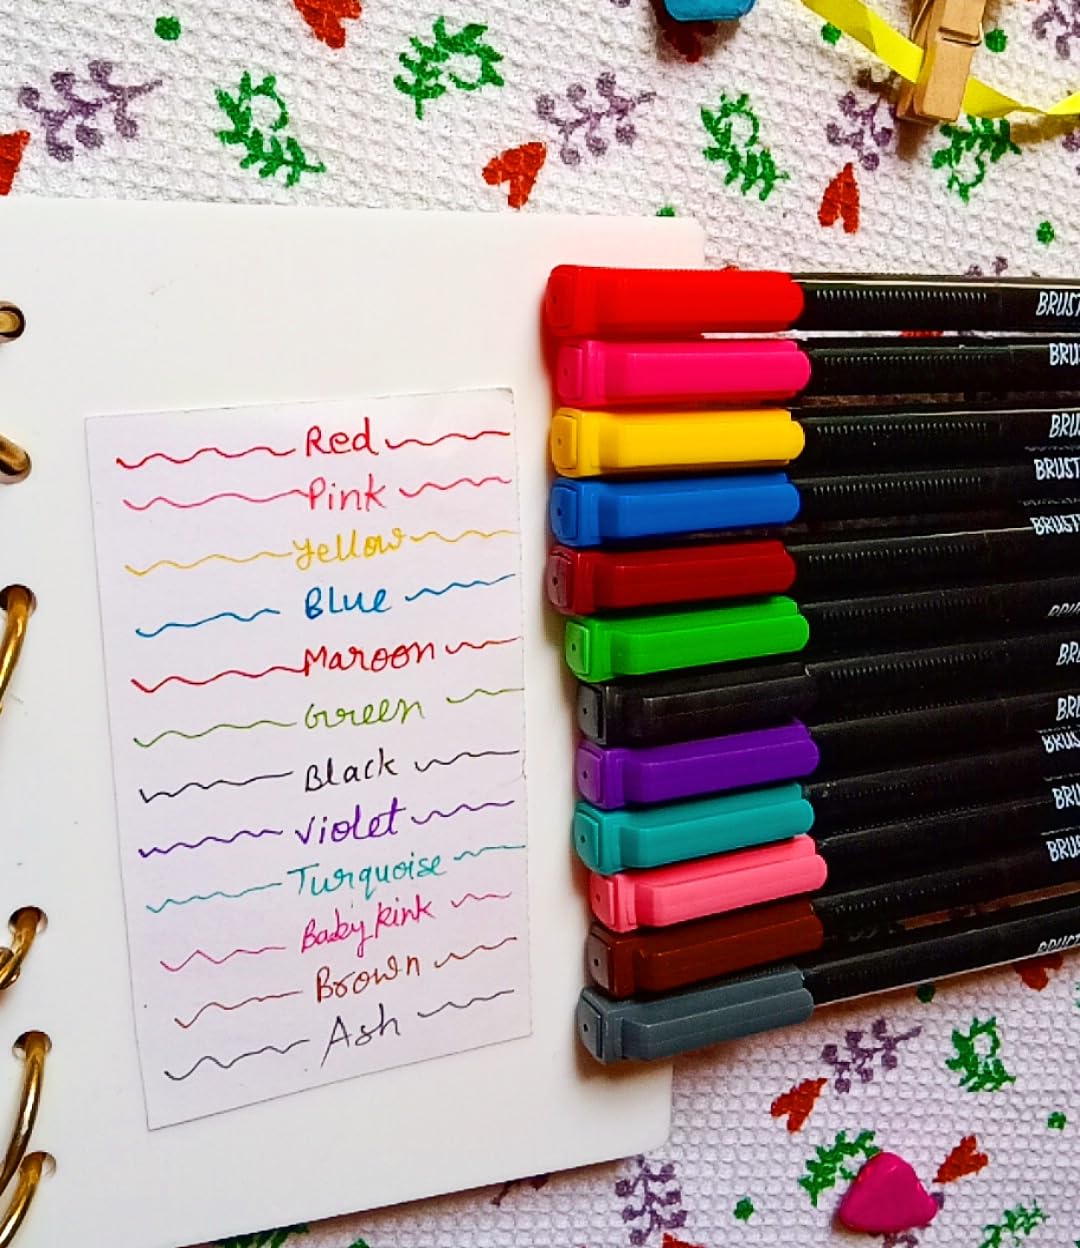 Red
Pink
Yellow
Blue
Maroon
Green
Black
Violet
Turquoise
Baby Pink
Brown
Ash
BRUST
BRU
BRU
BRUST
BRUST
BRU
BRU
BRUS
BRU
BRUS
BRUST